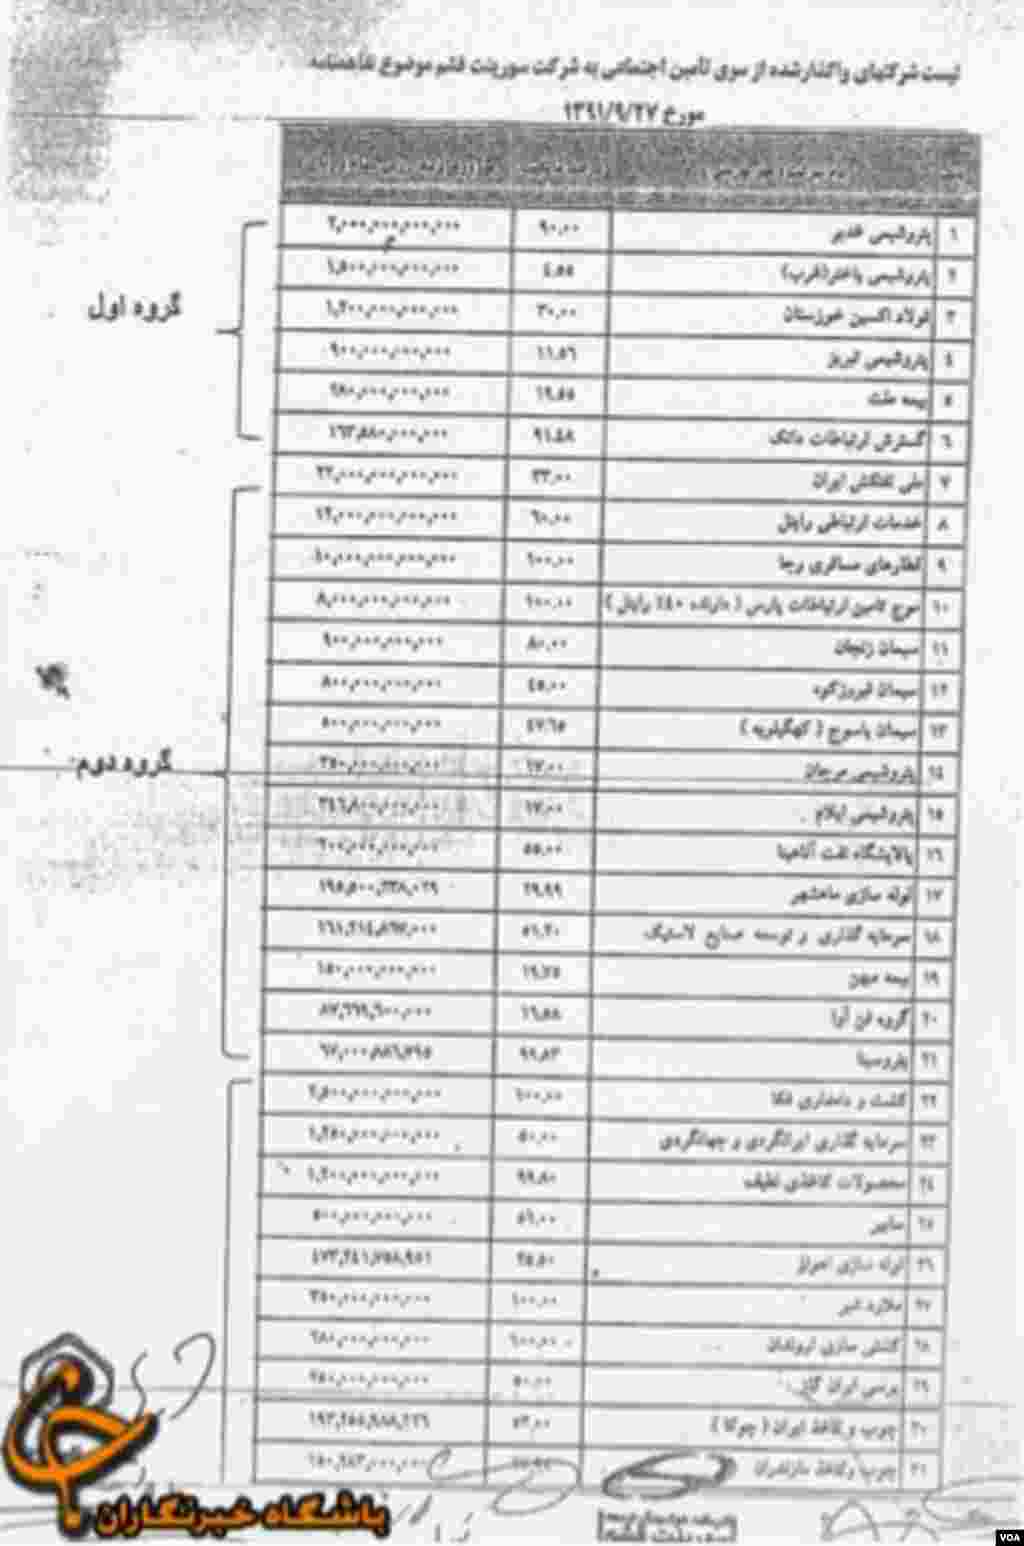 لیست شرکتهای واگذار شده از سوی تأمین اجتماعی به شرکت سورینت قشم موضوع تفاهمنامه
مورخ ۱۳۹۱/۹/۲۷
۱ پتروشیمی غدیر ۹۰.۰۰ ۲,۰۰۰,۰۰۰,۰۰۰,۰۰۰
۲ پتروشیمی باختر(غرب) ۴.۵۵ ۱,۵۰۰,۰۰۰,۰۰۰,۰۰۰
گروه اول
۳ فولاد اکسین خوزستان ۳۰.۰۰ ۱,۲۰۰,۰۰۰,۰۰۰,۰۰۰
۴ پتروشیمی تبریز ۱۱.۵۶ ۹۰۰,۰۰۰,۰۰۰,۰۰۰
۵ بیمه ملت ۱۹.۵۵ ۶۸۰,۰۰۰,۰۰۰,۰۰۰
۶ گسترش ارتباطات داتک ۹۱.۴۸ ۱۶۳,۵۸۰,۰۰۰,۰۰۰
۷ ملی نفتکش ایران ۳۳.۰۰ ۲۲,۰۰۰,۰۰۰,۰۰۰,۰۰۰
۸ خدمات ارتباطی رایتل ۶۰.۰۰ ۱۲,۰۰۰,۰۰۰,۰۰۰,۰۰۰
۹ قطارهای مسافری رجا ۱۰۰.۰۰ ۱۰,۰۰۰,۰۰۰,۰۰۰,۰۰۰
۱۰ موج تامین ارتباطات پارس ( دارنده ۴۰٪ رایتل ) ۱۰۰.۰۰ ۸,۰۰۰,۰۰۰,۰۰۰,۰۰۰
۱۱ سیمان زنجان ۸۰.۰۰ ۹۰۰,۰۰۰,۰۰۰,۰۰۰
۱۲ سیمان فیروزکوه ۴۵.۰۰ ۸۰۰,۰۰۰,۰۰۰,۰۰۰
۱۳ سیمان یاسوج ( کهگیلویه ) ۴۷.۶۵ ۵۰۰,۰۰۰,۰۰۰,۰۰۰
گروه دوم
۱۴ پتروشیمی مرجان ۱۷.۰۰ ۳۵۰,۰۰۰,۰۰۰,۰۰۰
۱۵ پتروشیمی ایلام ۱۷.۰۰ ۳۴۶,۸۰۰,۰۰۰,۰۰۰
۱۶ پالایشگاه نفت آناهیتا ۵۵.۰۰ ۲۰۰,۰۰۰,۰۰۰,۰۰۰
۱۷ لوله سازی ماهشهر ۲۹.۹۹
۱۸ سرمایه گذاری و توسعه صنایع لاستیک ۵۱.۲۰
۱۹ بیمه میهن ۱۹.۷۵ ۱۵۰,۰۰۰,۰۰۰,۰۰۰
۲۰ گروه فن آوا ۱۶.۵۸ ۸۷,۶۶۹,۶۰۰,۰۰۰
۲۱ پتروسینا ۹۹.۸۳
۲۲ کشت و دامداری فکا ۱۰۰.۰۰ ۲,۵۰۰,۰۰۰,۰۰۰,۰۰۰
۲۳ سرمایه گذاری ایرانگردی و جهانگردی ۵۰.۰۰ ۱,۲۵۰,۰۰۰,۰۰۰,۰۰۰
۲۴ محصولات کاغذی لطیف ۹۹.۸۰ ۱,۲۰۰,۰۰۰,۰۰۰,۰۰۰
۲۵ سایپر ۵۶.۰۰ ۵۰۰,۰۰۰,۰۰۰,۰۰۰
۲۶ لوله سازی اهواز ۲۵.۵۰
۲۷ ملارد شیر ۱۰۰.۰۰ ۳۵۰,۰۰۰,۰۰۰,۰۰۰
۲۸ کشتی سازی اروندان ۱۰۰.۰۰ ۲۸۰,۰۰۰,۰۰۰,۰۰۰
۲۹ پرسی ایران گاز ۵۰.۰۰ ۲۵۰,۰۰۰,۰۰۰,۰۰۰
۳۰ چوب و کاغذ ایران ( چوکا ) ۵۲.۰۰
۳۱ چوب و کاغذ مازندران
باشگاه خبرنگاران
VOA